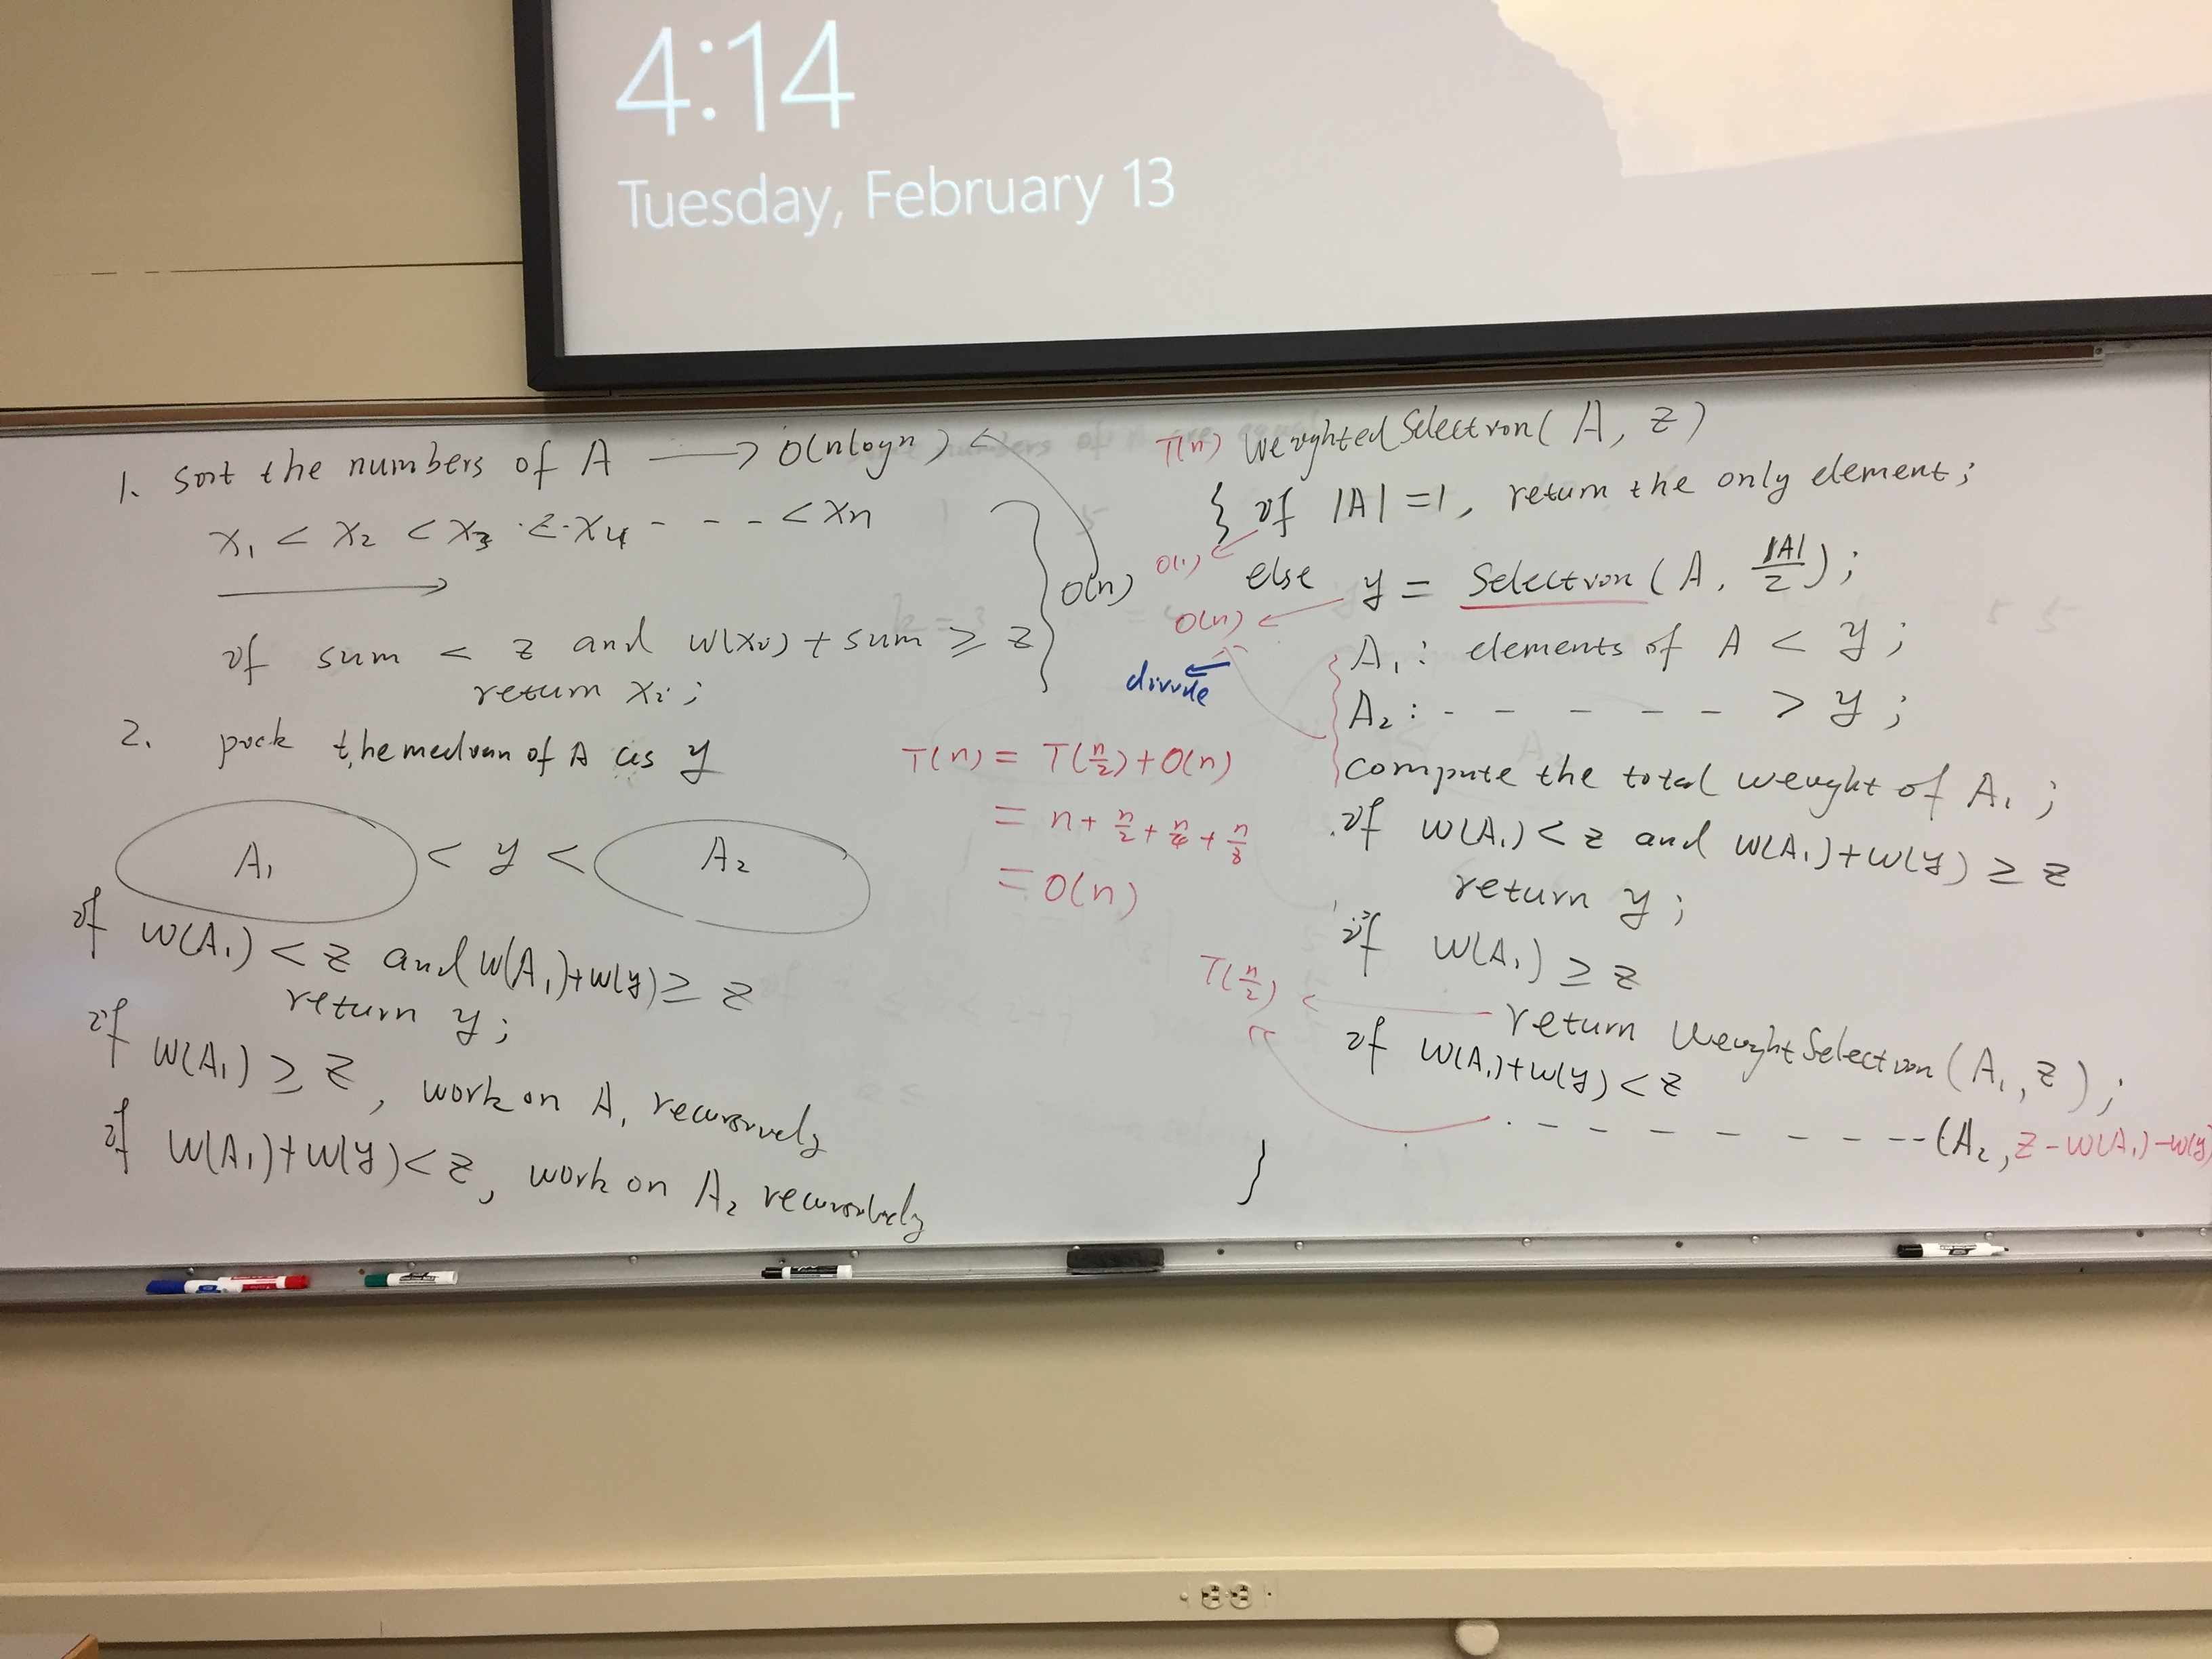 4:14
Tuesday, February 13
1. sort the numbers of A → O(nlogn)
x₁ < x₂ < x₃ < x₄ - - - < xn
O(n)
if sum < z and w(xi) + sum ≥ z
return xi;
2. pick the median of A as y
A₁ < y < A₂
if w(A₁) < z and w(A₁)+w(y) ≥ z
return y;
if w(A₁) ≥ z, work on A₁ recursively
if w(A₁)+w(y) < z, work on A₂ recursively
T(n) = T(n/2) + O(n)
= n + n/2 + n/4 + n/8
= O(n)
T(n) WeightedSelection(A, z)
{ if |A| = 1, return the only element;
O(1)
else y = Selection(A, |A|/2);
O(n)
divide
A₁: elements of A < y;
A₂: - - - - - > y;
compute the total weight of A₁;
if w(A₁) < z and w(A₁)+w(y) ≥ z
return y;
if w(A₁) ≥ z
T(n/2) ← return WeightSelection(A₁, z);
if w(A₁)+w(y) < z
- - - - - - - - (A₂, z-w(A₁)-w(y)
}